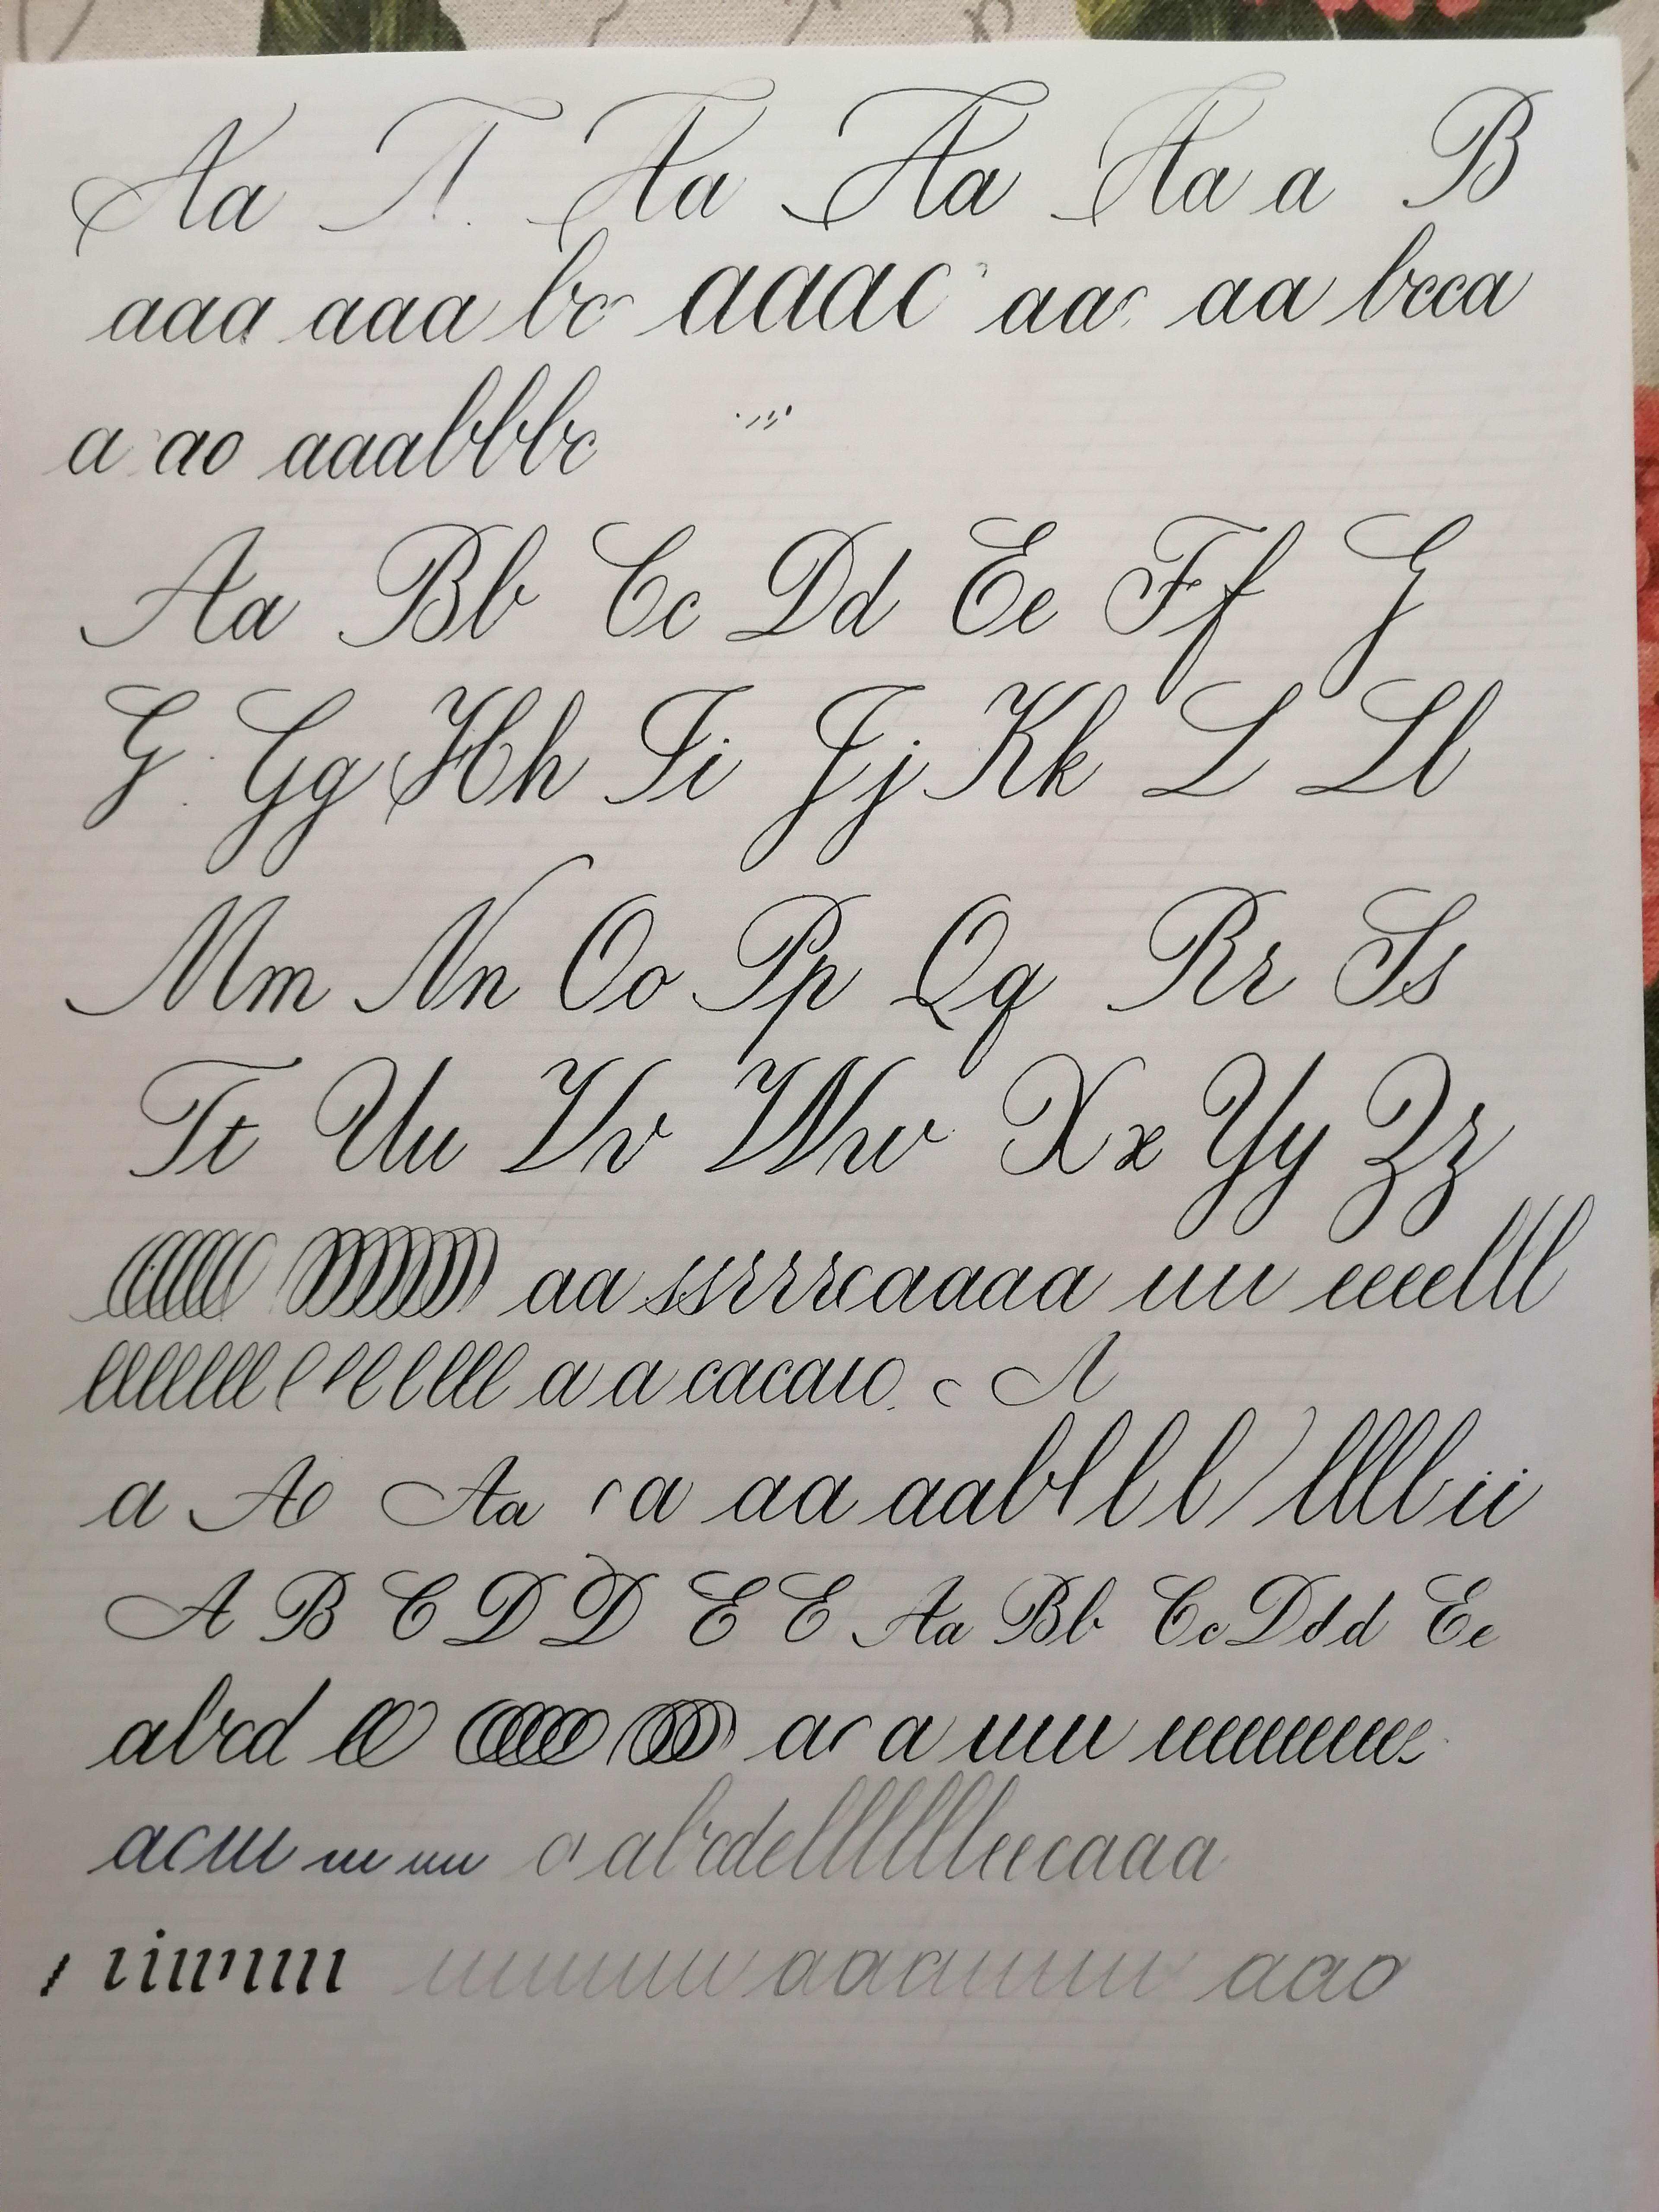 Aa T Aa Aa Aa a B
aaa aaa bc aaac aac aa bcca
a ao aaabbbc
Aa Bb Cc Dd Ee Ff G
G Gg Hh Ii Jj Kk L Ll
Mm Nn Oo Pp Qq Rr Ss
Tt Uu Vv Ww Xx Yy Zz
aa ssrrrcaaaa uu eeeelll
lllllll l l l l l lll a a cacaio c A
a Ao Aa a aa aabl l l llll ii
A B C D D E E Aa Bb Cc Ddd Ee
abcd a a uu eeeeeeeee
acuu abcdelllllleecaaa
aao